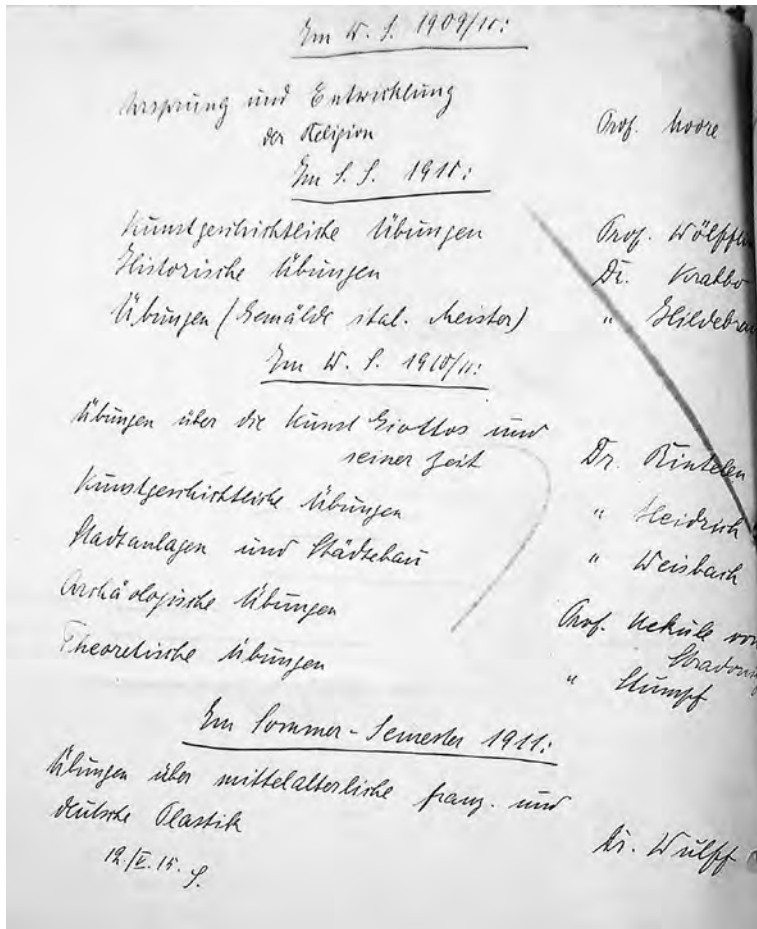 Im W. S. 1909/10:
Ursprung und Entwicklung
der Religion Prof. Moore
Im S. S. 1910:
Kunstgeschichtliche Übungen Prof. Wölfflin
Historische Übungen Dr. Krabbo
Übungen (Gemälde ital. Meister) " Hildebran
Im W. S. 1910/11:
Übungen über die Kunst Giottos und
seiner Zeit Dr. Rintelen
Kunstgeschichtliche Übungen " Heidrich
Stadtanlagen und Städtebau " Weisbach
Archäologische Übungen Prof. Kekule von
Stradonitz
Theoretische Übungen " Stumpf
Im Sommer-Semester 1911:
Übungen über mittelalterliche franz. und
deutsche Plastik Dr. Wulff